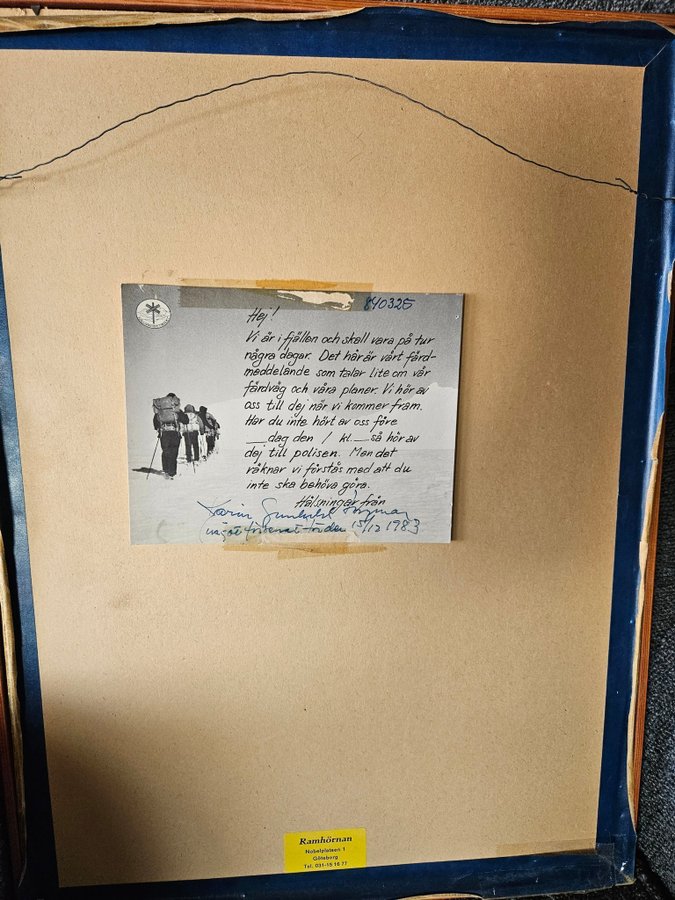 840325
Hej!
Vi är i fjällen och skall vara på tur
några dagar. Det här är vårt färd-
meddelande som talar lite om vår
färdväg och våra planer. Vi hör av
oss till dej när vi kommer fram.
Har du inte hört av oss före
__dag den / kl.__så hör av
dej till polisen. Men det
räknar vi förstås med att du
inte ska behöva göra.
Hälsningar från
Karin Gunhild Ingmar
15/12 1983
Ramhörnan
Nobelplatsen 1
Göteborg
Tel. 031-15 16 77